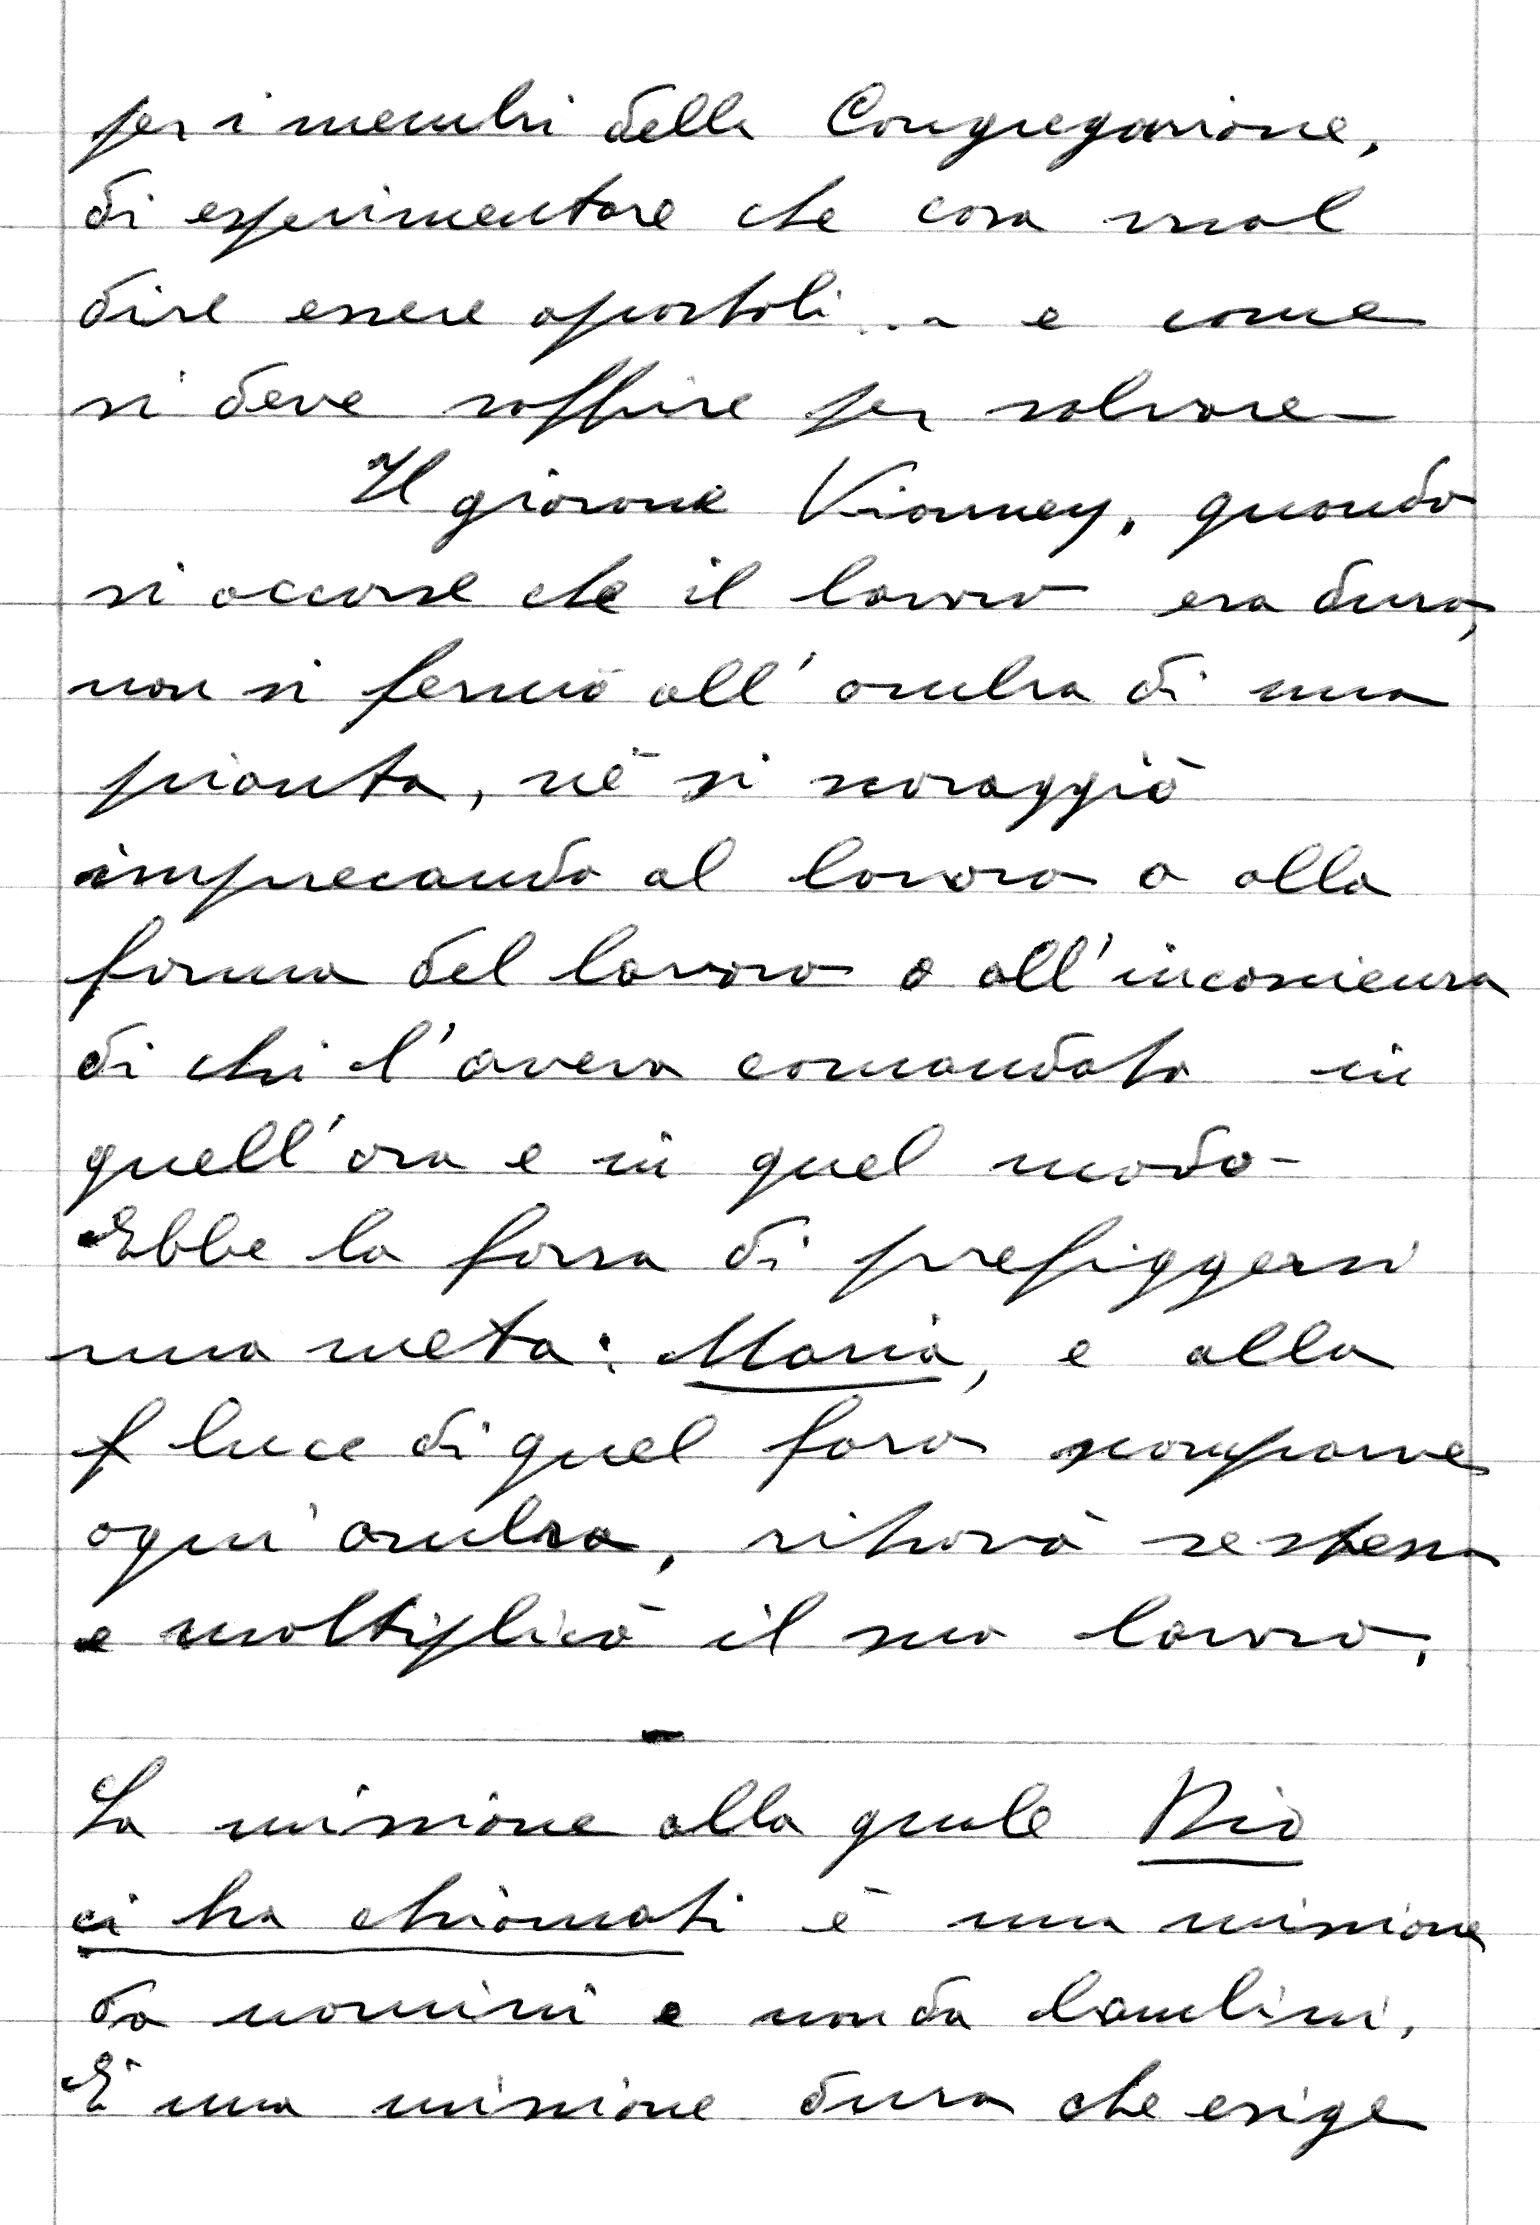 per i membri della Congregazione,
di esperimentare che cosa vuol
dire essere apostoli ... e come
si deve soffrire per salvare -
Il giovane Vianney, quando
si accorse che il lavoro era duro,
non si fermò all'ombra di una
pianta, nè si scoraggiò
imprecando al lavoro o alla
forma del lavoro o all'incoscienza
di chi l'aveva comandato in
quell'ora e in quel modo -
Ebbe la forza di prefiggersi
una meta: Maria, e alla
luce di quel faro scomparve
ogni ombra, ritrovò se stesso
e moltiplicò il suo lavoro.
-
La missione alla quale Dio
ci ha chiamati è una missione
da uomini e non da bambini.
È una missione dura che esige